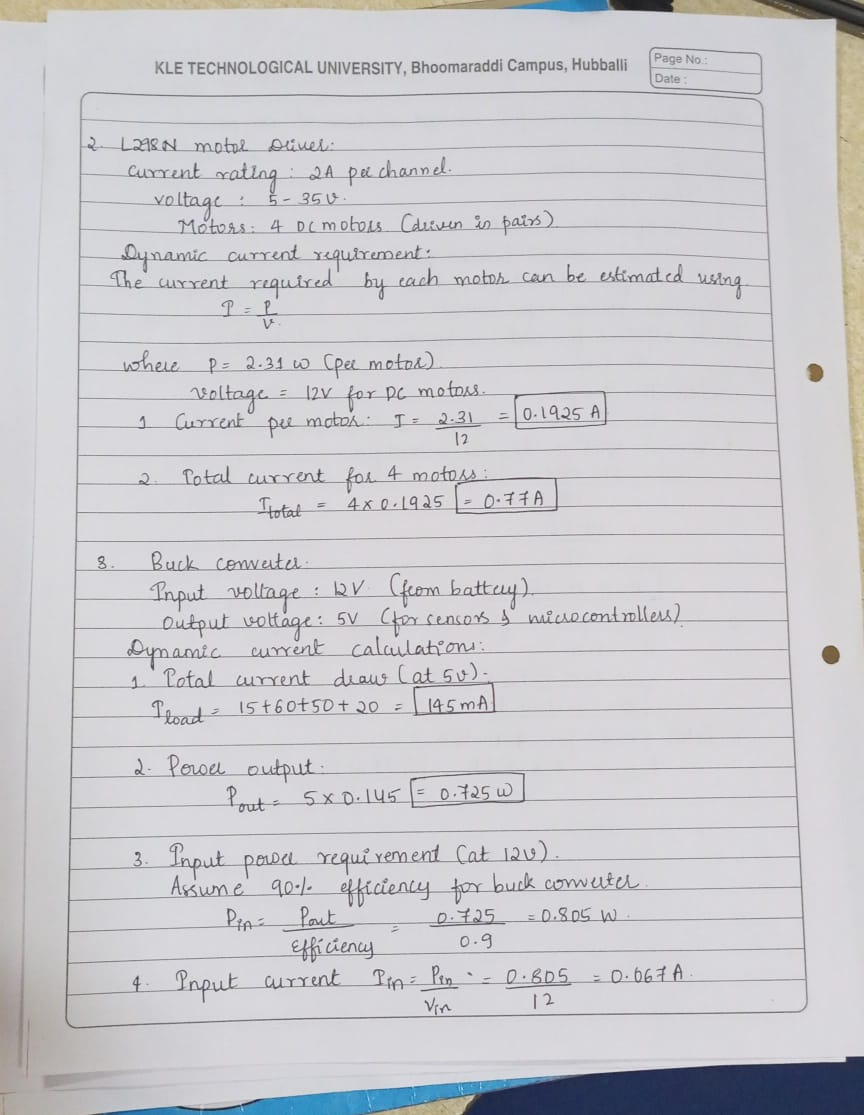 KLE TECHNOLOGICAL UNIVERSITY, Bhoomaraddi Campus, Hubballi
Page No.:
Date :
2. L298N motor Driver:
Current rating : 2A per channel.
voltage : 5 - 35V.
Motors: 4 DC motors (driven in pairs)
Dynamic current requirement:
The current required by each motor can be estimated using
I = P/V.
where P = 2.31 W (per motor)
voltage = 12V for DC motors.
1 Current per motor: I = 2.31/12 = 0.1925 A
2. Total current for 4 motors:
Itotal = 4 x 0.1925 = 0.77A
3. Buck converter.
Input voltage : 12V (from battery)
Output voltage : 5V (for sensors & microcontrollers)
Dynamic current calculation:
1. Total current draw (at 5V).
Iload = 15+60+50+20 = 145mA
2. Power output.
Pout = 5 x 0.145 = 0.725 W
3. Input power requirement (at 12V).
Assume 90% efficiency for buck converter.
Pin = Pout/Efficiency = 0.725/0.9 = 0.805 W.
4. Input current Iin = Pin/Vin = 0.805/12 = 0.067A.